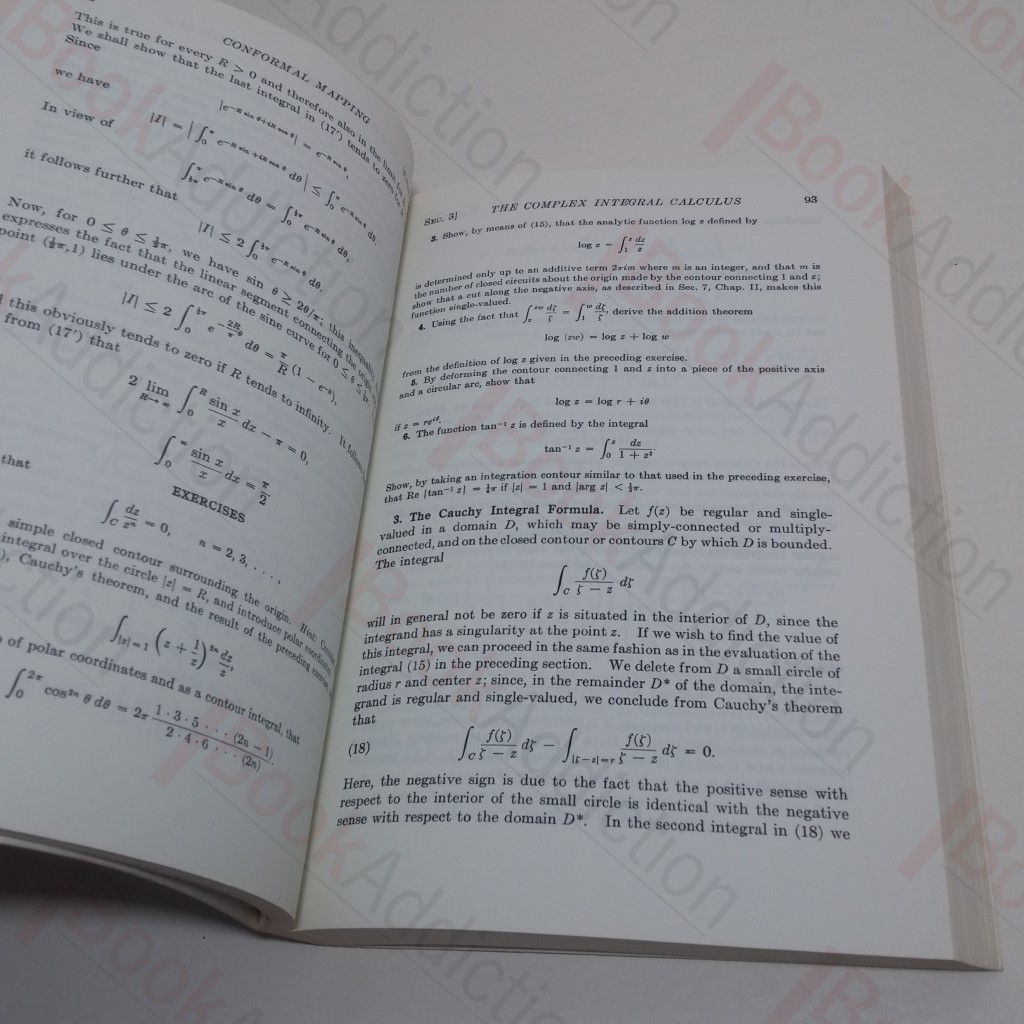 CONFORMAL MAPPING
This is true for every R > 0 and therefore also in the limit
We shall show that the last integral in (17') tends to zero
Since
|e^{-R sin θ+iR cos θ}| = e^{-R sin θ},
we have
|I| = |∫_0^π e^{-R sin θ+iR cos θ} dθ| ≤ ∫_0^π e^{-R sin θ} dθ.
In view of
∫_{½π}^π e^{-R sin θ} dθ = ∫_0^{½π} e^{-R sin θ} dθ,
it follows further that
|I| ≤ 2 ∫_0^{½π} e^{-R sin θ} dθ.
Now, for 0 ≤ θ ≤ ½π, we have sin θ ≥ 2θ/π; this inequality
expresses the fact that the linear segment connecting the origin
point (½π,1) lies under the arc of the sine curve for 0 ≤ θ ≤ ½π.
|I| ≤ 2 ∫_0^{½π} e^{-2Rθ/π} dθ = π/R (1 − e^{-R}),
this obviously tends to zero if R tends to infinity. It follows
from (17') that
2 lim_{R→∞} ∫_0^R sin x/x dx − π = 0,
that
∫_0^∞ sin x/x dx = π/2
EXERCISES
∫_C dz/z^n = 0, n = 2, 3, . . . ,
simple closed contour surrounding the origin. Hint:
integral over the circle |z| = R, and introduce polar coordinates
), Cauchy's theorem, and the result of the preceding exercise
∫_{|z|=1} (z + 1/z)^{2n} dz/z,
of polar coordinates and as a contour integral, that
∫_0^{2π} cos^{2n} θ dθ = 2π 1 · 3 · 5 . . . (2n − 1)/2 · 4 · 6 . . . (2n)
SEC. 3] THE COMPLEX INTEGRAL CALCULUS 93
3. Show, by means of (15), that the analytic function log z defined by
log z = ∫_1^z dz/z
is determined only up to an additive term 2πim where m is an integer, and that m is
the number of closed circuits about the origin made by the contour connecting 1 and z;
show that a cut along the negative axis, as described in Sec. 7, Chap. II, makes this
function single-valued.
4. Using the fact that ∫_z^{zw} dζ/ζ = ∫_1^w dζ/ζ, derive the addition theorem
log (zw) = log z + log w
from the definition of log z given in the preceding exercise.
5. By deforming the contour connecting 1 and z into a piece of the positive axis
and a circular arc, show that
log z = log r + iθ
if z = re^{iθ}.
6. The function tan⁻¹ z is defined by the integral
tan⁻¹ z = ∫_0^z dz/1 + z²
Show, by taking an integration contour similar to that used in the preceding exercise,
that Re {tan⁻¹ z} = ¼π if |z| = 1 and |arg z| < ½π.
3. The Cauchy Integral Formula. Let f(z) be regular and single-
valued in a domain D, which may be simply-connected or multiply-
connected, and on the closed contour or contours C by which D is bounded.
The integral
∫_C f(ζ)/ζ − z dζ
will in general not be zero if z is situated in the interior of D, since the
integrand has a singularity at the point z. If we wish to find the value of
this integral, we can proceed in the same fashion as in the evaluation of the
integral (15) in the preceding section. We delete from D a small circle of
radius r and center z; since, in the remainder D* of the domain, the inte-
grand is regular and single-valued, we conclude from Cauchy's theorem
that
(18) ∫_C f(ζ)/ζ − z dζ − ∫_{|ζ−z|=r} f(ζ)/ζ − z dζ = 0.
Here, the negative sign is due to the fact that the positive sense with
respect to the interior of the small circle is identical with the negative
sense with respect to the domain D*. In the second integral in (18) we
BookAddiction